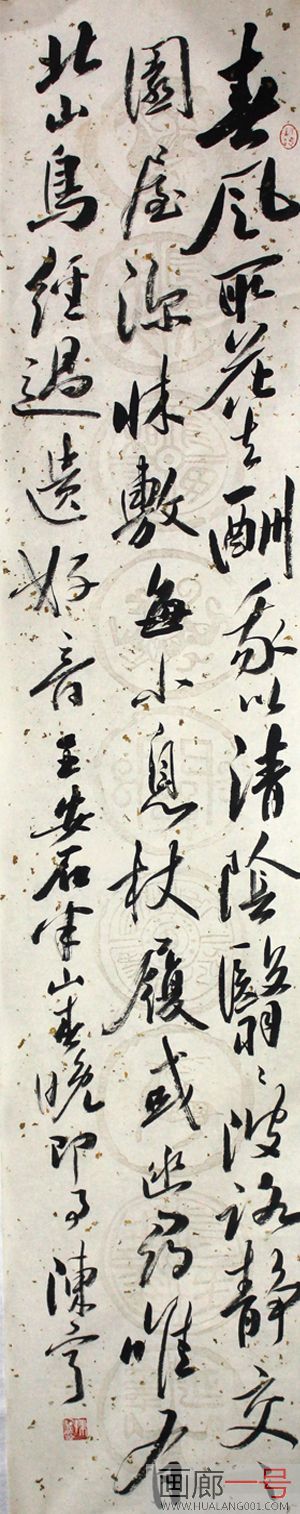 春风取花去酬我以清阴翳〻陂路静交〻
園屋深床敷每小息杖屦或幽尋唯有
北山鳥經過遺好音王安石半山春晚即事陳亨
画廊一号
WWW.HUALANG001.COM